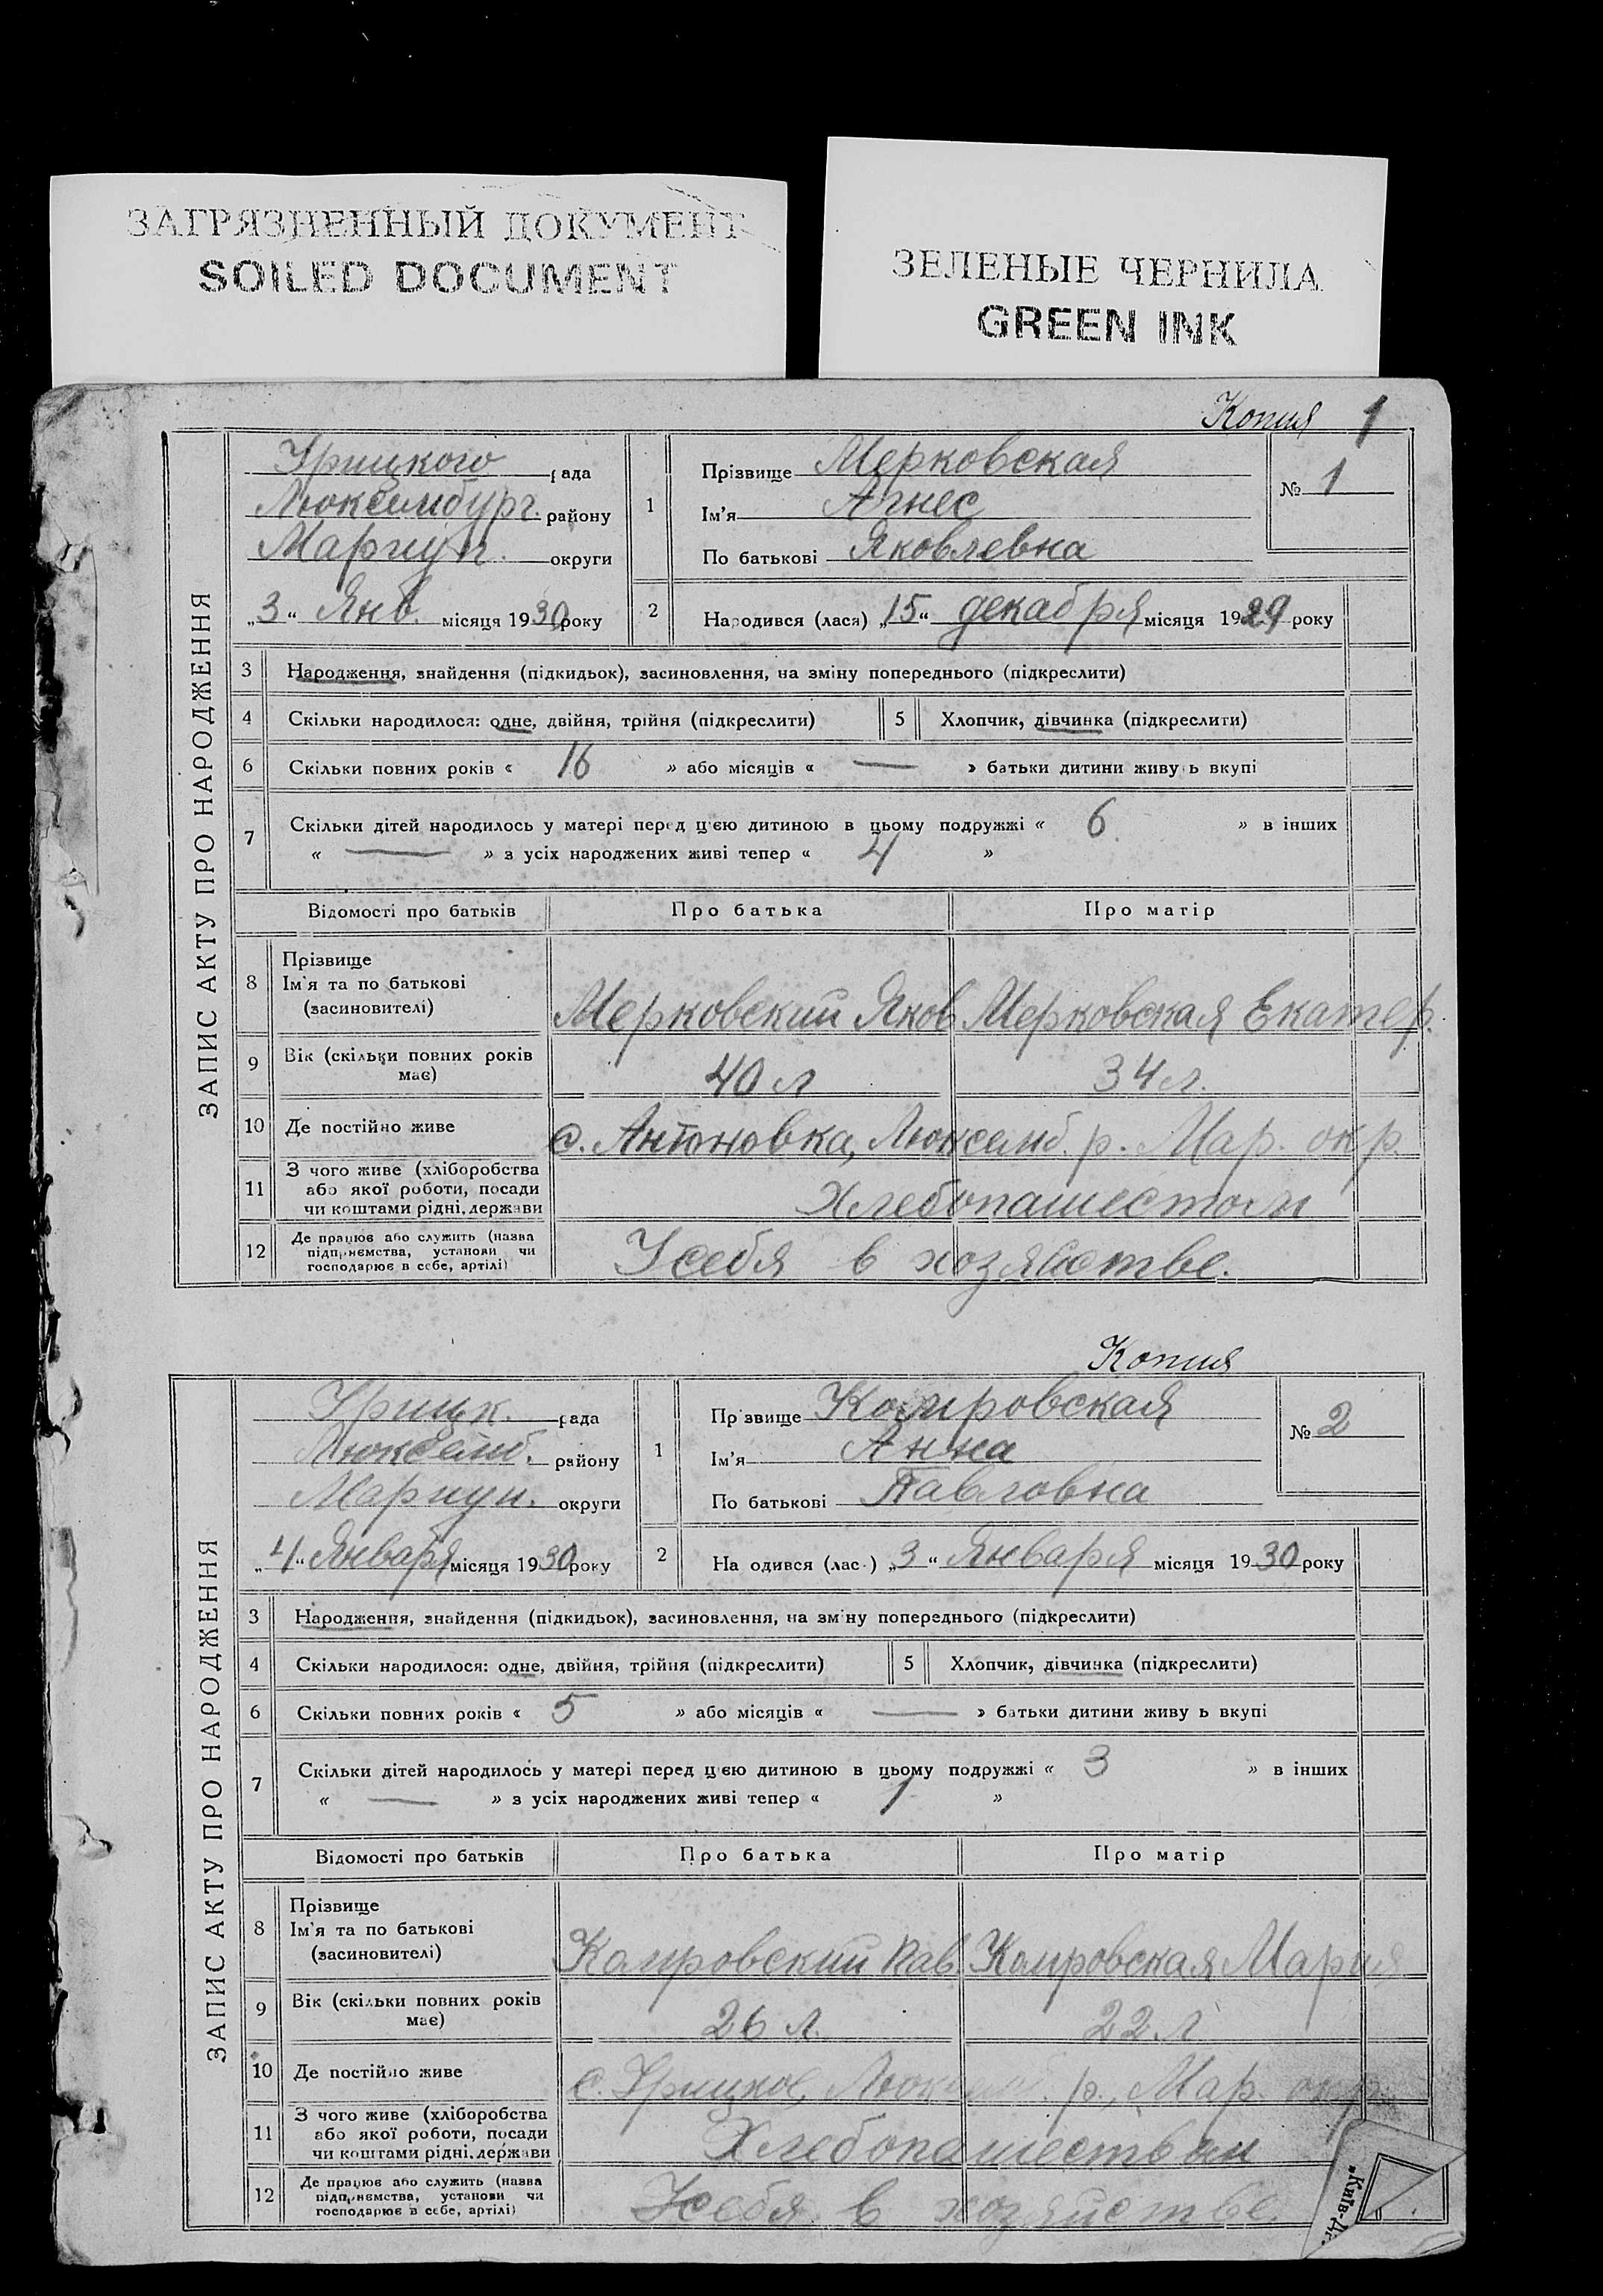 ЗАГРЯЗНЕННЫЙ ДОКУМЕНТ
SOILED DOCUMENT
ЗЕЛЕНЫЕ ЧЕРНИЛА
GREEN INK
Копия 1
ЗАПИС АКТУ ПРО НАРОДЖЕННЯ
Урицкого рада
Люксембург. району
Мариуп. округи
„3“ Янв. місяця 1930 року
1
Прізвище Мерковская
Ім'я Агнес
По батькові Яковлевна
№ 1
2 Народився (лася) „15“ декабря місяця 1929 року
3 Народження, знайдення (підкидьок), засиновлення, на зміну попереднього (підкреслити)
4 Скільки народилося: одне, двійня, трійня (підкреслити) 5 Хлопчик, дівчинка (підкреслити)
6 Скільки повних років « 16 » або місяців « — » батьки дитини живу ь вкупі
7 Скільки дітей народилось у матері перед цією дитиною в цьому подружжі « 6 » в інших
« — » з усіх народжених живі тепер « 4 »
Відомості про батьків Про батька Про матір
8 Прізвище
Ім'я та по батькові
(засиновителі)
Мерковский Яков Мерковская Екатер.
9 Вік (скільки повних років
має)
40 л 34 л.
10 Де постійно живе с. Антоновка, Люксемб. р. Мар. окр.
11 З чого живе (хліборобства
або якої роботи, посади
чи коштами рідні, держави
Хлебопашеством
12 Де працює або служить (назва
підприємства, установи чи
господарює в себе, артілі)
У себя в хозяйстве.
Копия
ЗАПИС АКТУ ПРО НАРОДЖЕННЯ
Урицк. рада
Люксемб. району
Мариуп. округи
„4“ Января місяця 1930 року
1
Пр звище Комровская
Ім'я Анна
По батькові Павловна
№ 2
2 На одився (лас ) „3“ Января місяця 1930 року
3 Народження, знайдення (підкидьок), засиновлення, на зміну попереднього (підкреслити)
4 Скільки народилося: одне, двійня, трійня (підкреслити) 5 Хлопчик, дівчинка (підкреслити)
6 Скільки повних років « 5 » або місяців « — » батьки дитини живу ь вкупі
7 Скільки дітей народилось у матері перед цією дитиною в цьому подружжі « 3 » в інших
« — » з усіх народжених живі тепер « 1 »
Відомості про батьків Про батька Про матір
8 Прізвище
Ім'я та по батькові
(засиновителі)
Комровский Пав. Комровская Мария
9 Вік (скільки повних років
має)
26 л. 22 л
10 Де постійно живе с. Урицкое, Люксемб. р., Мар. окр.
11 З чого живе (хліборобства
або якої роботи, посади
чи коштами рідні, держави
Хлебопашеством
12 Де працює або служить (назва
підприємства, установи чи
господарює в себе, артілі)
У себя в хозяйстве.
„Київ-Др.